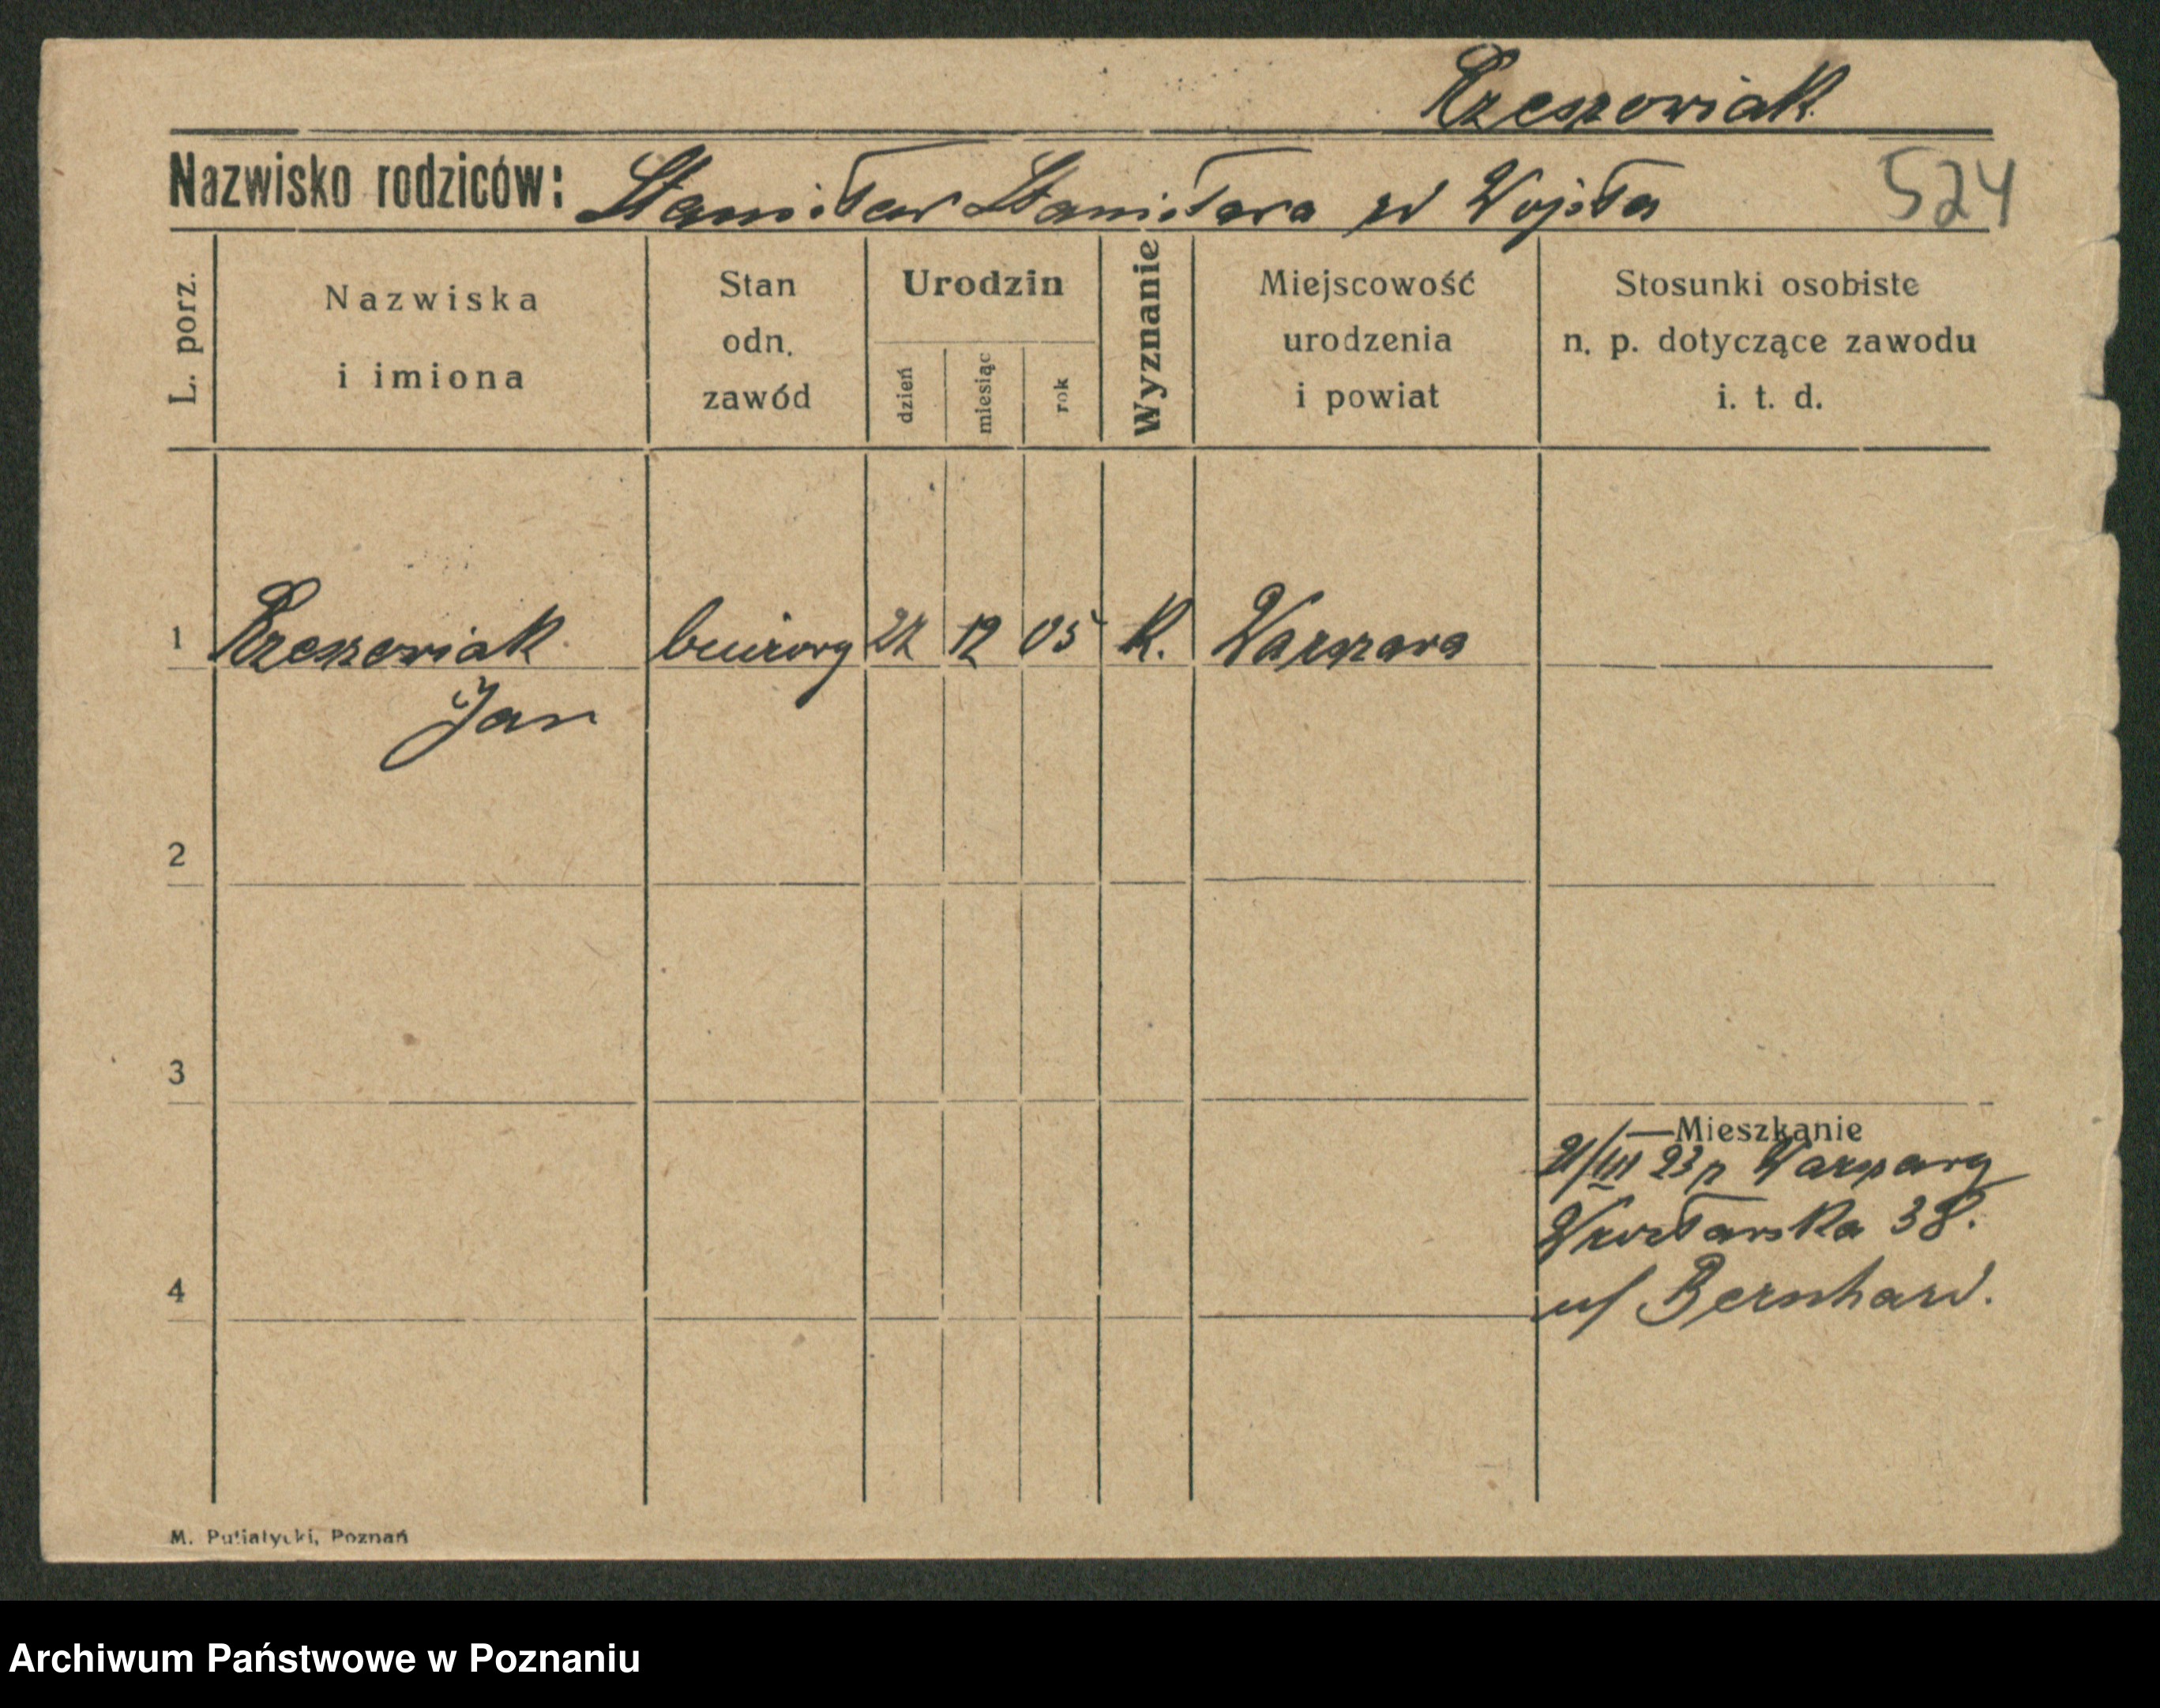 Rzeszowiak
Nazwisko rodziców: Stanisław Stanisława zd Wojsła
524
L. porz.
Nazwiska
i imiona
Stan
odn.
zawód
Urodzin
dzień
miesiąc
rok
Wyznanie
Miejscowość
urodzenia
i powiat
Stosunki osobiste
n. p. dotyczące zawodu
i. t. d.
1 Rzeszowiak 12 05 K. Warszawa
Jan
2
3
Mieszkanie
23 z Warszawy
38.
4
u/ Bernhard.
M. Putiatycki, Poznań
Archiwum Państwowe w Poznaniu